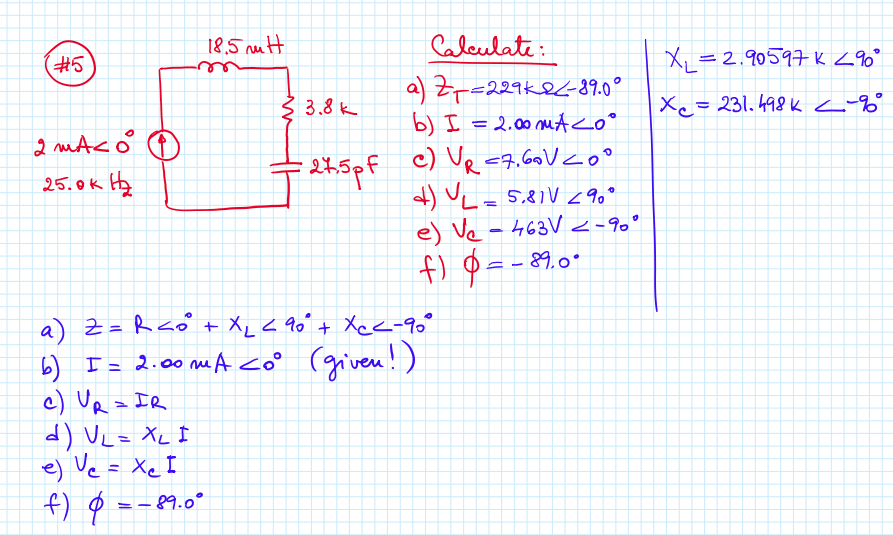 #5
18.5 mH
3.8 k
27.5pF
2 mA<0°
25.0k Hz
Calculate:
a) Z_T = 229kΩ<-89.0°
b) I = 2.00 mA<0°
c) V_R = 7.60V<0°
d) V_L = 5.81V<90°
e) V_C = 463V<-90°
f) ϕ = -89.0°
X_L = 2.90597 k <90°
X_C = 231.498 k <-90°
a) Z = R<0° + X_L<90° + X_C<-90°
b) I = 2.00 mA <0° (given!)
c) V_R = IR
d) V_L = X_L I
e) V_C = X_C I
f) ϕ = -89.0°